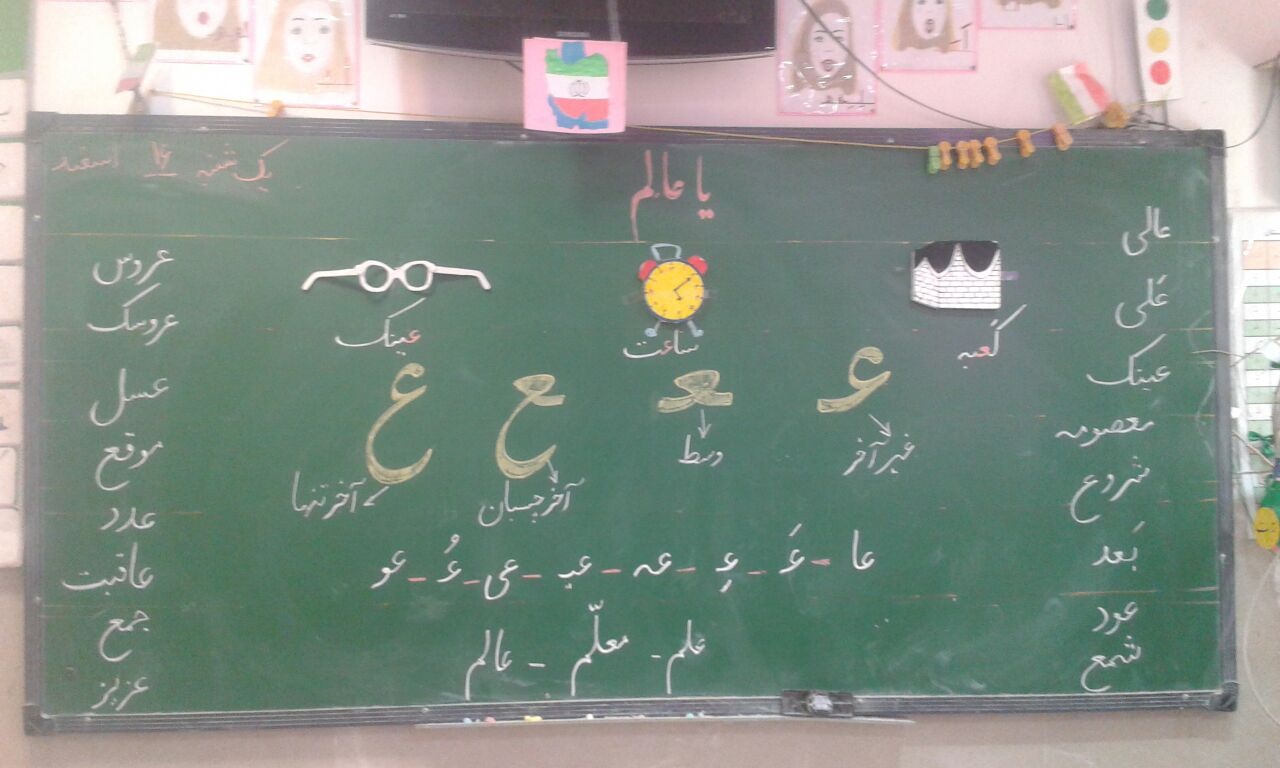 یک شنبه ۱۶ اسفند
یا عالم
عالی
علی
عینک
معصومه
شروع
بَعد
عود
شمع
کَعبه
ساعت
عینک
عـ ـعـ ـع ع
غیر آخر
وسط
آخر چسبان
آخر تنها
عا - عَ - عِ - عه - عیـ - عی - عُ - عو
علم - معلّم - عالم
عروس
عروسک
عسل
موقع
عدد
عاقبت
جمع
عزیز
SAMSUNG